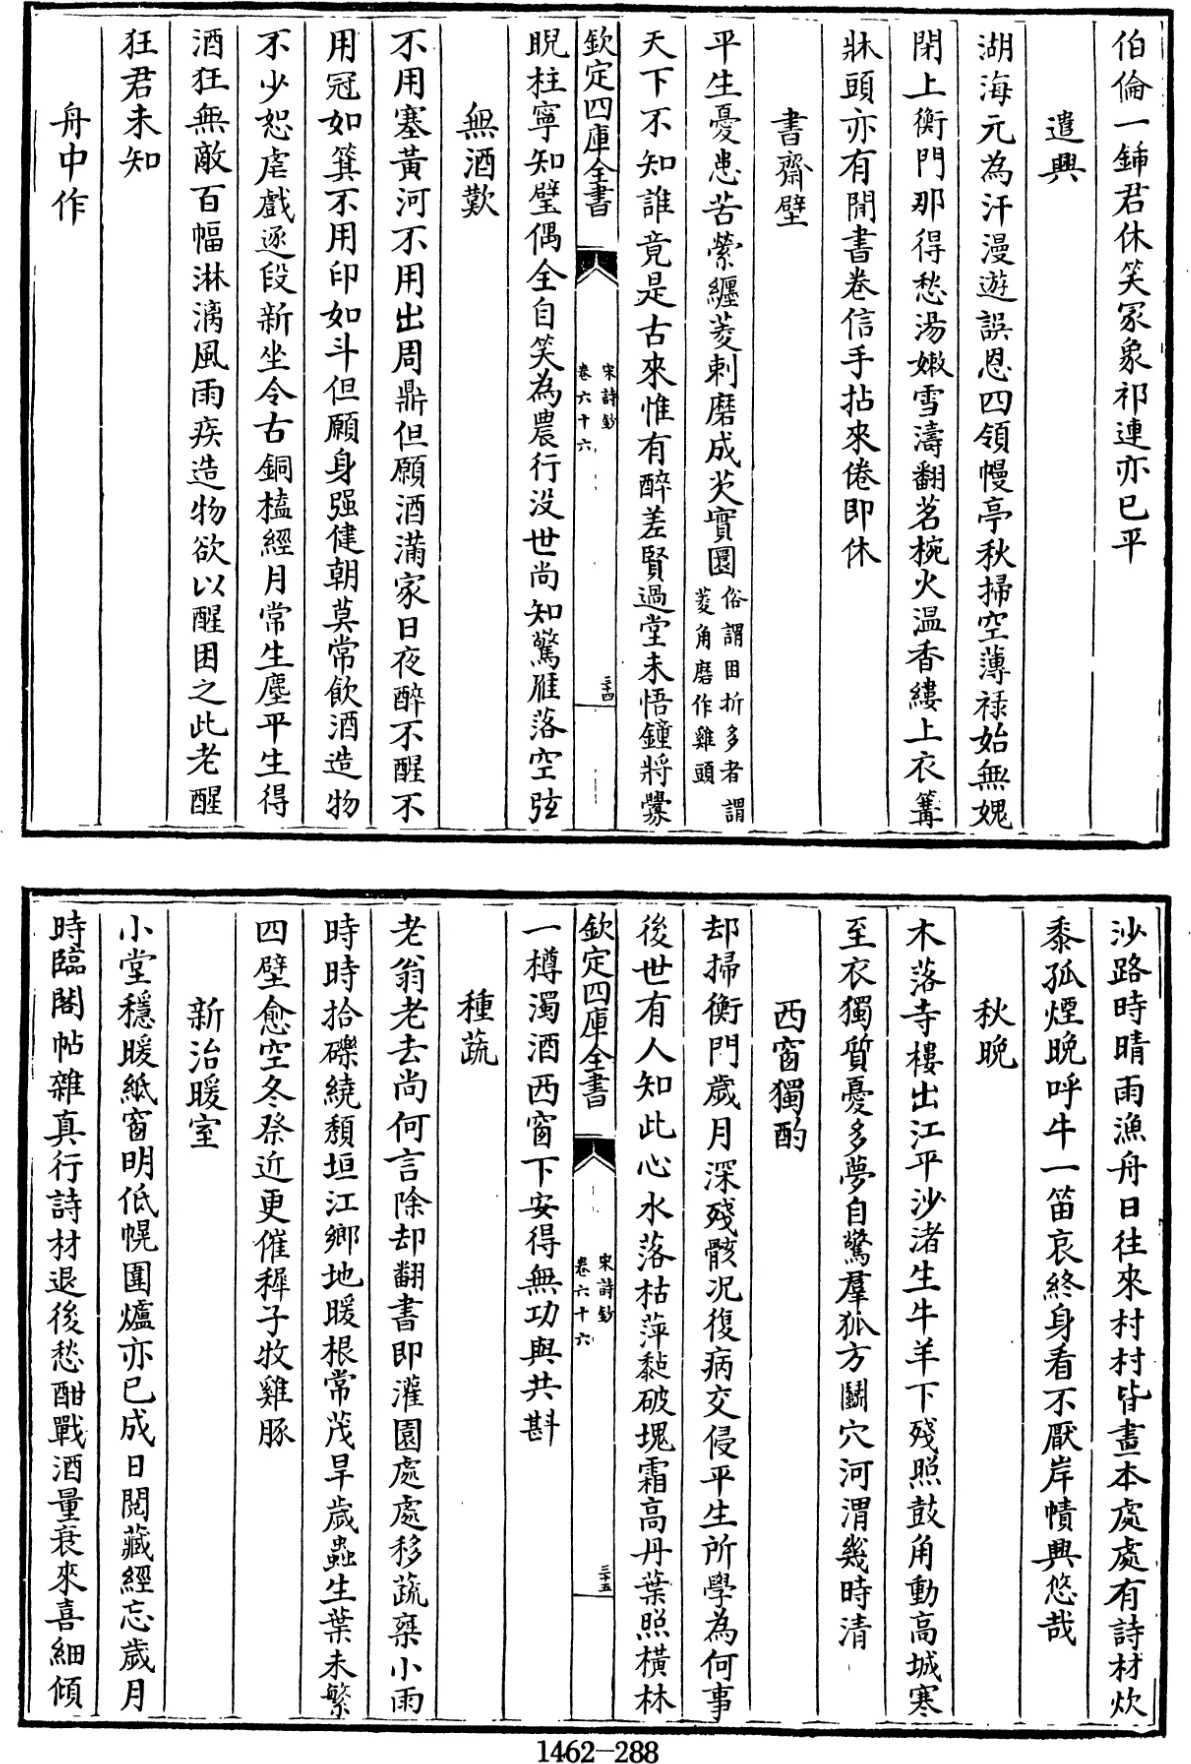 伯倫一鍤君休笑冢象祁連亦已平
遣興
湖海元為汗漫遊誤恩四領幔亭秋掃空薄禄始無媿
閉上衡門那得愁湯嫩雪濤翻茗椀火温香縷上衣篝
牀頭亦有閒書卷信手拈來倦即休
書齋壁
平生憂患苦縈纏菱刺磨成芡實圓俗謂困折多者謂菱角磨作雞頭
天下不知誰竟是古來惟有醉差賢過堂未悟鐘將釁
欽定四庫全書
宋詩鈔
卷六十六
三十四
睨柱寧知璧偶全自笑為農行没世尚知驚雁落空弦
無酒歎
不用塞黃河不用出周鼎但願酒滿家日夜醉不醒不
用冠如箕不用印如斗但願身强健朝莫常飲酒造物
不少恕虐戲逐段新坐令古銅榼經月常生塵平生得
酒狂無敵百幅淋漓風雨疾造物欲以醒困之此老醒
狂君未知
舟中作
沙路時晴雨漁舟日往來村村皆畫本處處有詩材炊
黍孤煙晚呼牛一笛哀終身看不厭岸幘興悠哉
秋晚
木落寺樓出江平沙渚生牛羊下殘照鼓角動高城寒
至衣獨質憂多夢自驚羣狐方鬭穴河渭幾時清
西窗獨酌
却掃衡門歲月深殘骸况復病交侵平生所學為何事
後世有人知此心水落枯萍黏破塊霜高丹葉照橫林
欽定四庫全書
宋詩鈔
卷六十六
三十五
一樽濁酒西窗下安得無功與共斟
種蔬
老翁老去尚何言除却翻書即灌園處處移蔬乘小雨
時時拾礫繞頹垣江鄉地暖根常茂旱歲蟲生葉未繁
四壁愈空冬祭近更催穉子牧雞豚
新治暖室
小堂穩暖紙窗明低幌圍爐亦已成日閲藏經忘歲月
時臨閣帖雜真行詩材退後愁酣戰酒量衰來喜細傾
1462-288